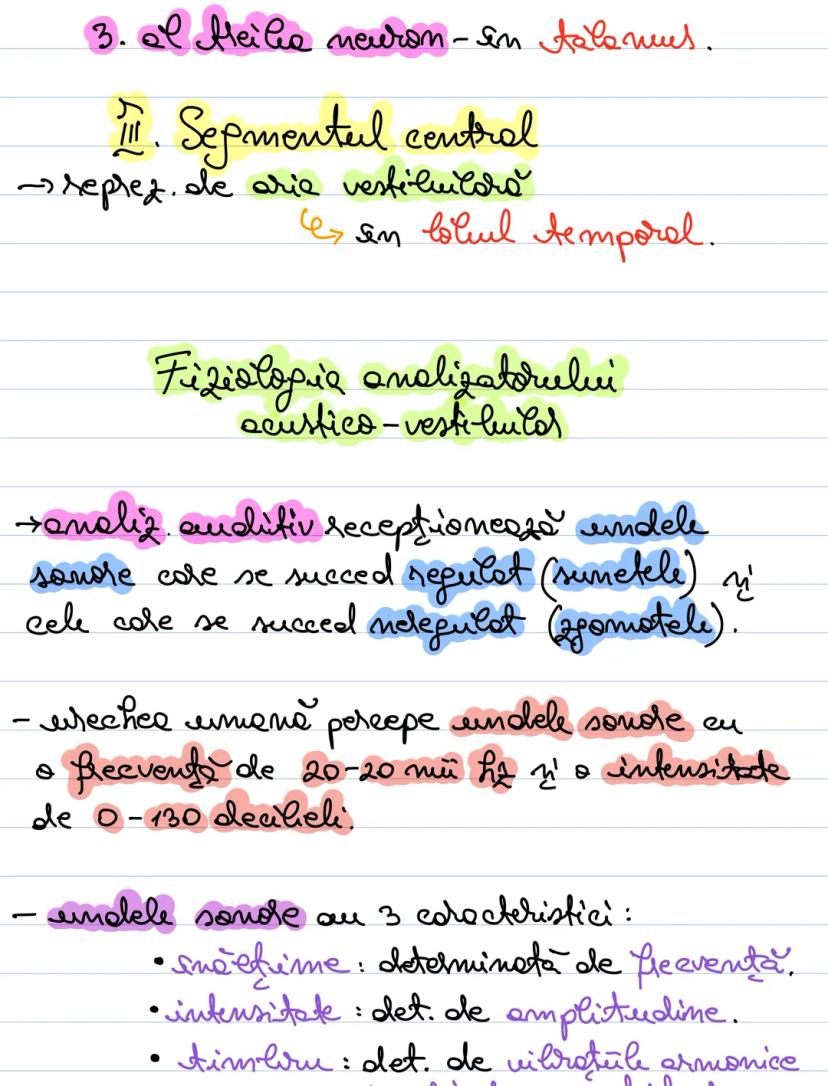 3. al treilea neuron - în talamus.
III. Segmentul central
→ reprez. de aria vestibulară
↳ în lobul temporal.
Fiziologia analizatorului
acustico-vestibular
→ analiz. auditiv recepționează undele
sonore care se succed regulat (sunetele) și
cele care se succed neregulat (zgomotele).
- urechea umană percepe undele sonore cu
o frecvență de 20-20 mii hz și o intensitate
de 0-130 decibeli.
- undele sonore au 3 caracteristici:
• înălțime: determinată de frecvență.
• intensitate: det. de amplitudine.
• timbru: det. de vibrațiile armonice